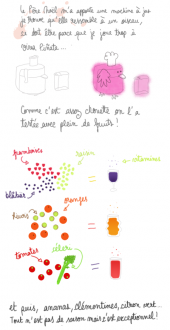 le Père Noël m'a apporté une machine à jus
je trouve qu'elle ressemble à un oiseau,
ça doit être parce que je joue trop à
Viva Piñata...
Comme c'est assez chouette on l'a
testée avec plein de fruits!
framboises
raisin
vitamines
blébar
kiwis
oranges
tomates
céleri
et puis, ananas, clémentines, citron vert...
Tout n'est pas de saison mais c'est exceptionnel!